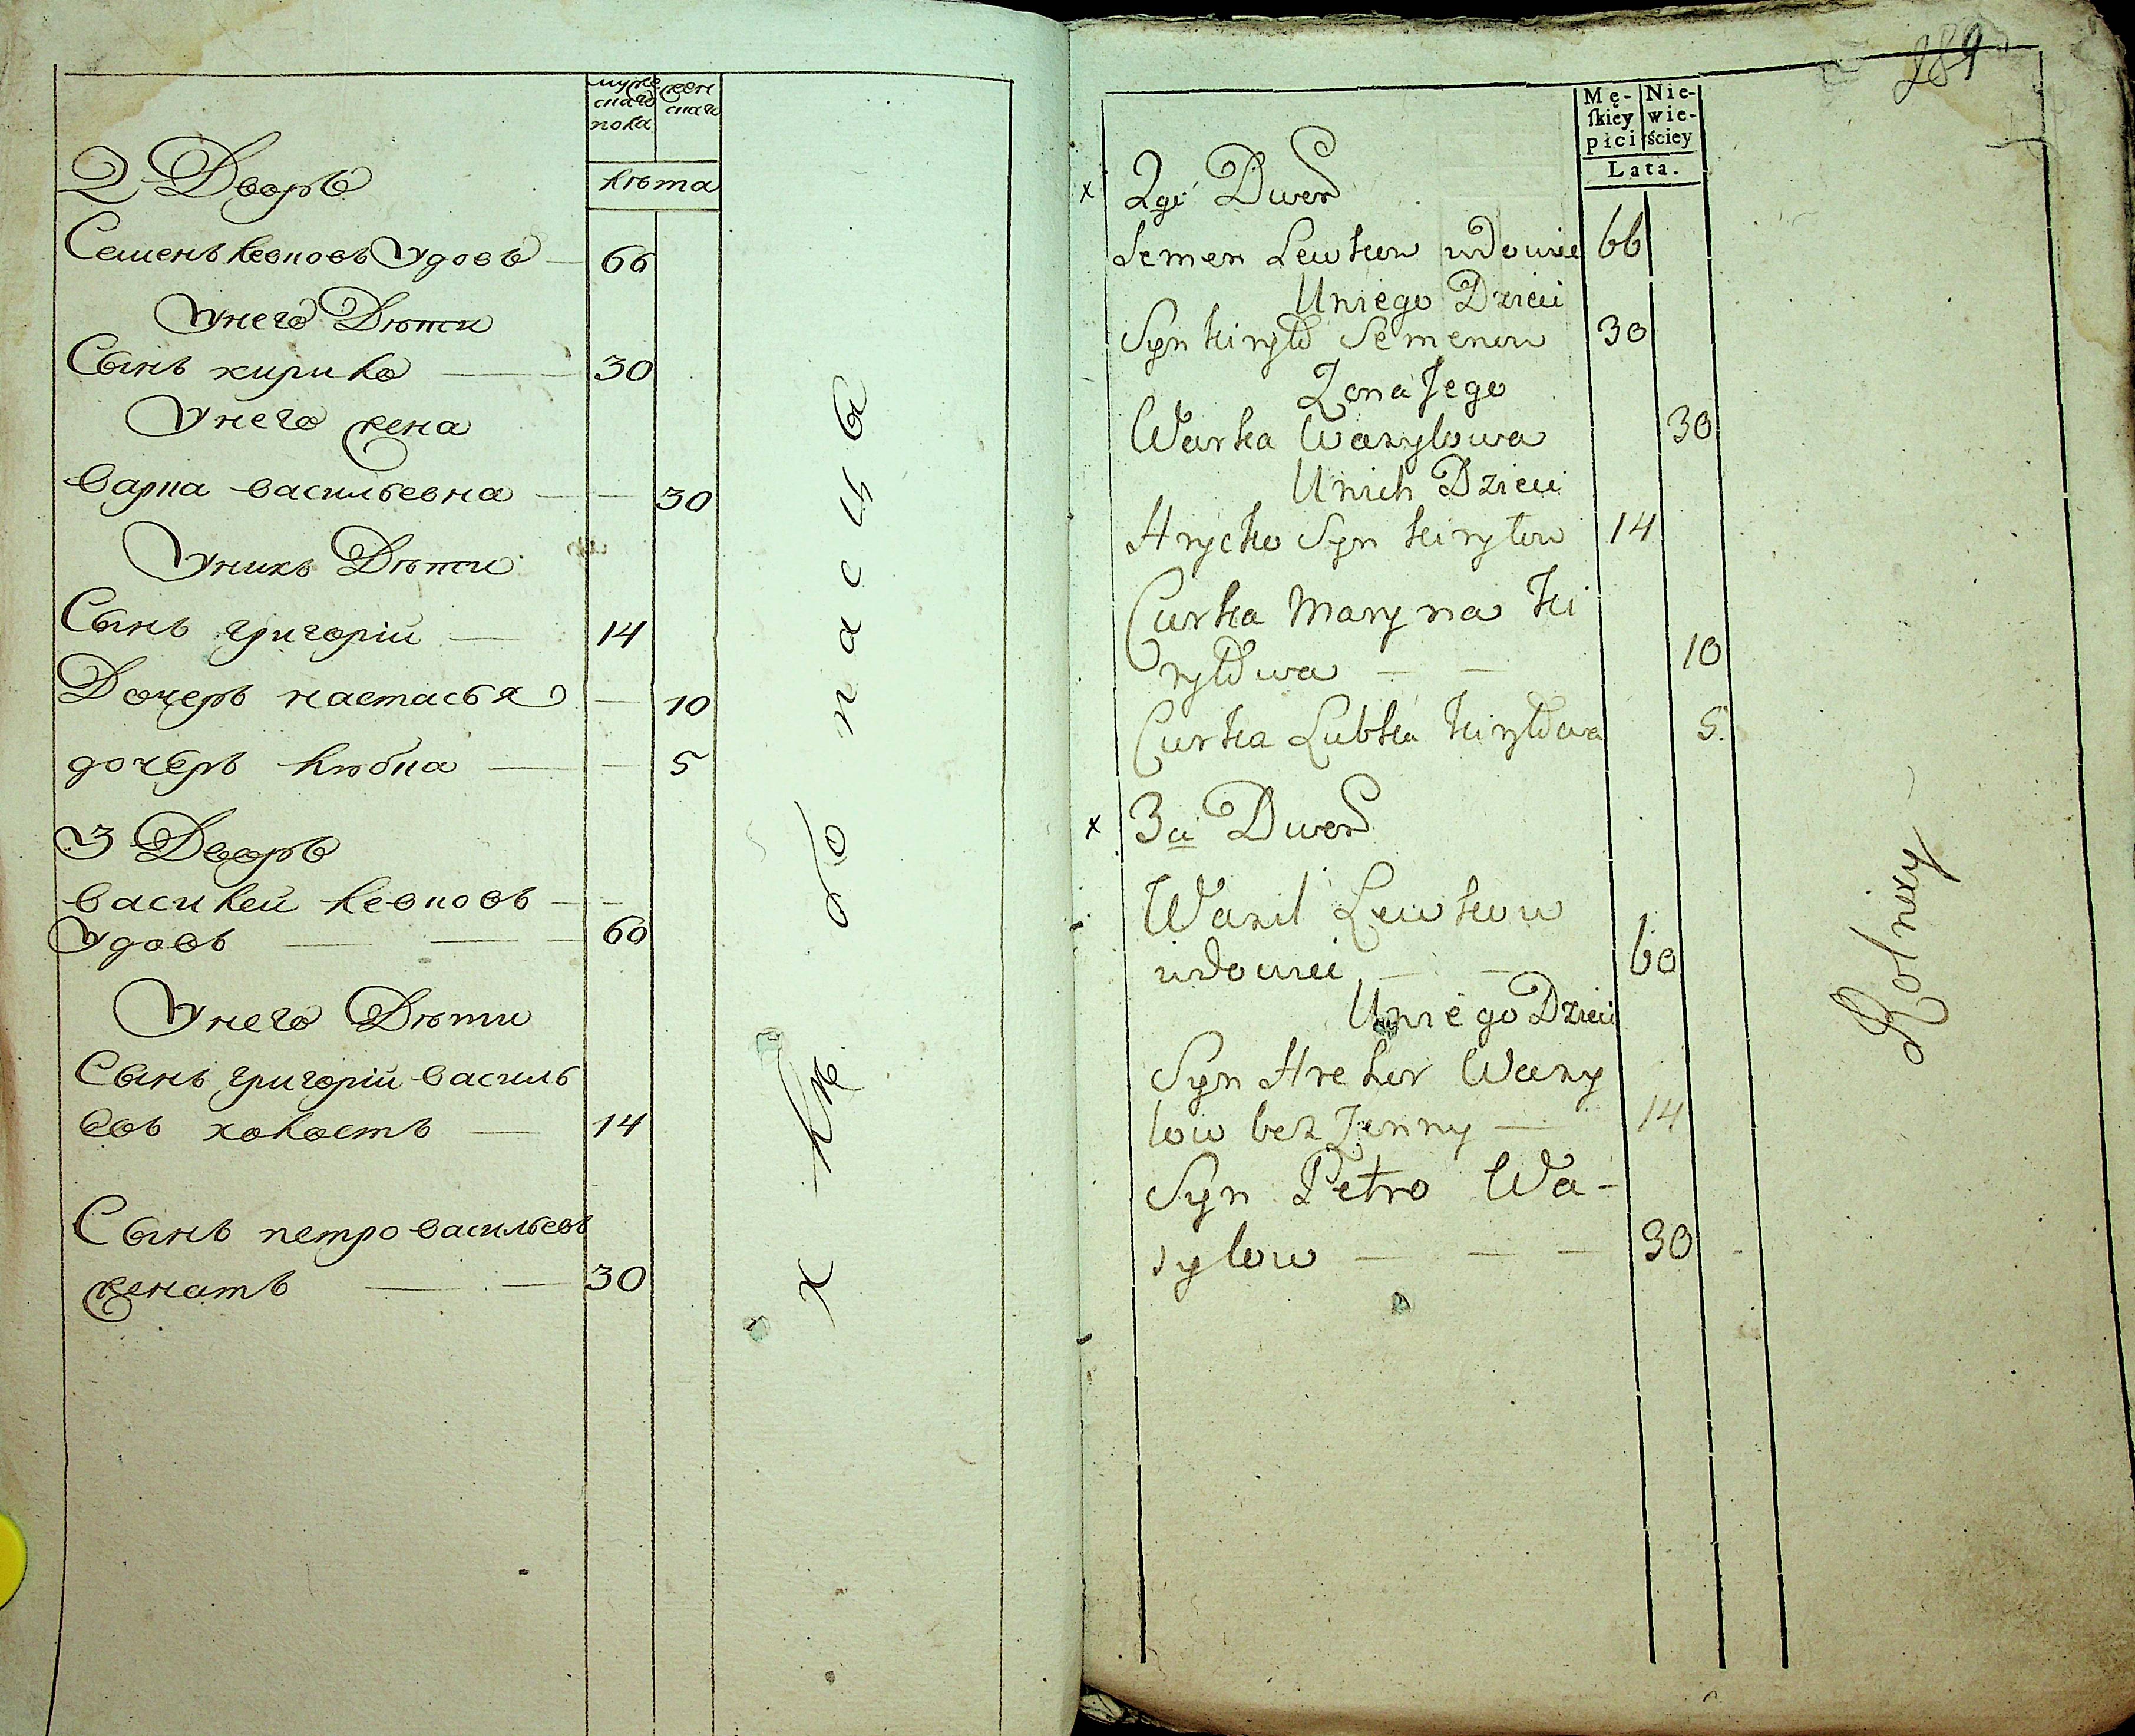 мужескаго пола
женскаго
лѣта
2 Дворъ
Семенъ Левковъ Удовъ — 66
У него Дѣти
Сынъ кирило — 30
У него жена
варка васильевна — 30
У нихъ Дѣти
Сынъ григорій — 14
Дочерь настасья — 10
дочерь любка — 5
3 Дворъ
василей левковъ —
Удовъ — — 60
У него Дѣти
Сынъ григорій василь
евъ холостъ — 14
Сынъ петро васильевъ
женатъ — — 30
хлѣбопасцы
289
Mę-
ſkiey
płci
Nie-
wie-
ściey
Lata.
x 2gi Dwor
Semen Lewkow wdowie 66
Uniego Dzieci
Syn Kiryło Semenow 30
Zona Jego
Warka Wasylowa 30
Unich Dzieci
Hryćko Syn Kiryłow 14
Curka Maryna Ki
ryłowa — — 10
Curka Lubka Kiryłowa 5.
x 3ci Dwor
Wasil Lewkow
wdowiei — — 60
Uniego Dzieci
Syn Hrehor Wasy
low bez Zenny — 14
Syn Petro Wa-
sylow — — — 30
Rolniey